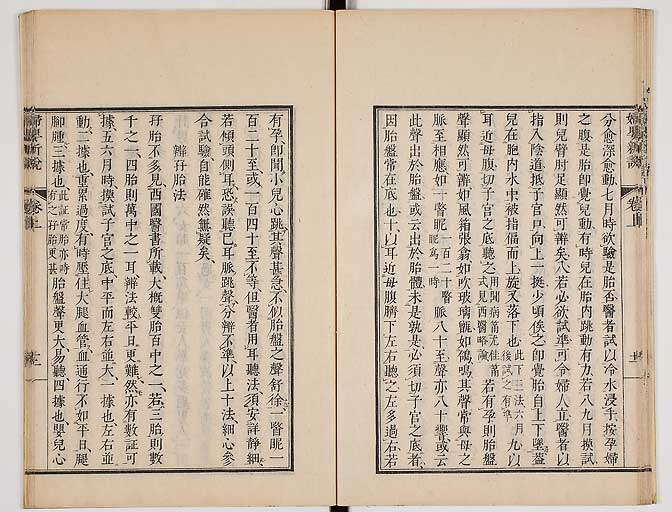 婦嬰新說
卷上
分愈深愈動七月時欲驗是胎否醫者試以冷水浸手按孕婦
之腹是胎卽覺兒動有時兒在胎內跳動有力若八九月摸試
則兒臂肘足顯然可辨矣八若必欲試準可令婦人立醫者以
指入陰道抵子宮戸向上一挺少頃俟之卽覺胎自上下墜蓋
兒在胞內水中被指偪而上旋又落下也此下二法六月後試之有準九以
耳近母腹切子宮之底聽之用聞病筩尤佳筩式見西醫略論若有孕則胎盤
聲顯然可辨如風箱張翕如吹玻璃瓶如鴿鳴其聲常與母之
脈至相應如一瞥眤一百二十瞥眤爲一時脈八十至聲亦八十響或云
此聲出於胎盤或云出於胎體未是就是必須切子宮之底者
因胎盤常在底也十以耳近母腹臍下左右聽之左多過右若
有孕卽聞小兒心跳其聲甚急不似胎盤之聲舒徐一瞥眤一
百二十至或一百四十至不等但醫者用耳聽法須安詳靜細
若傾頭側耳恐誤聽己耳脈跳聲分辨不準以上十法細心參
合試驗自能確然無疑矣
辨孖胎法
孖胎不多見西國醫書所載大槪雙胎百中之一二若三胎則數
千之一四胎則萬中之一耳辨法較平且更難然亦有數証可
據五六月時摸試子宮之底中平而左右並大一據也左右並
動二據也重累過度有時壓住大腿血管血通行不如平日腿
腳腫三據也此証常胎亦時有之孖胎更甚胎盤聲更大易聽四據也嬰兒心
婦嬰新說
卷上